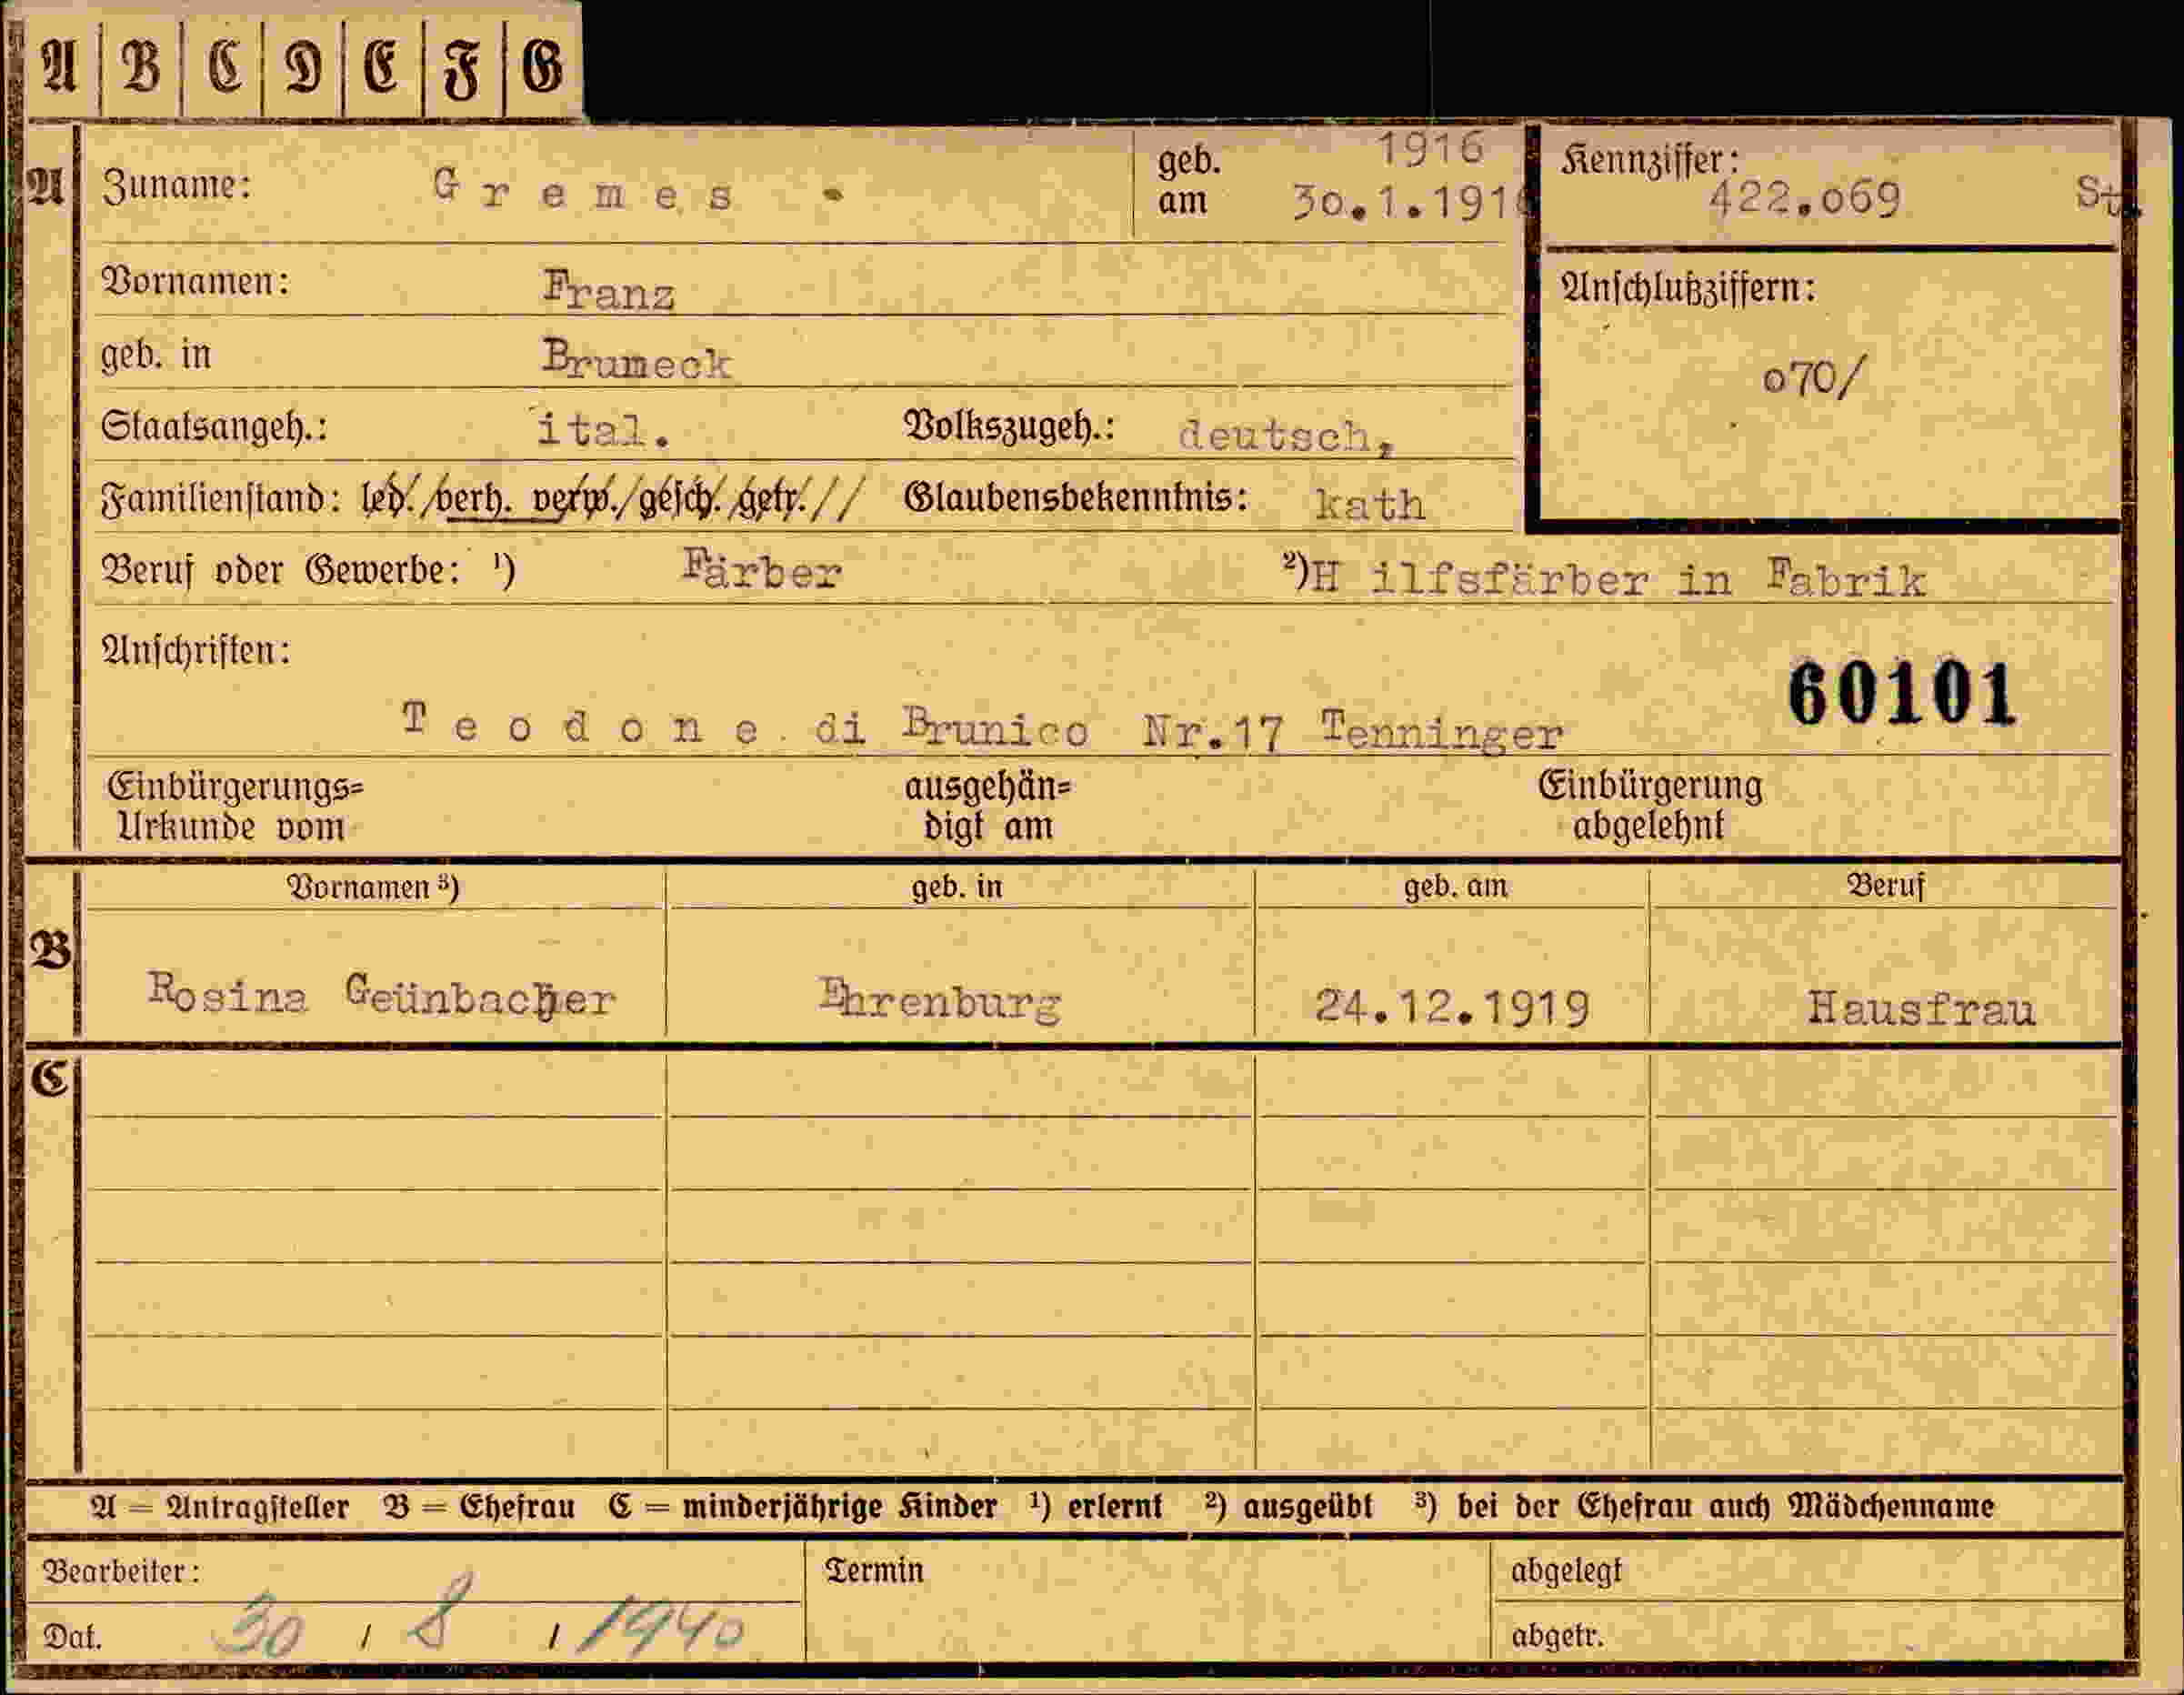 A B C D E F G
A Zuname: Gremes geb. am 1916 30.1.1916 Kennziffer: 422.069 St.
Vornamen: Franz Anschlußziffern:
geb. in Bruneck 070/
Staatsangeh.: ital. Volkszugeh.: deutsch,
Familienstand: led./verh. verw./gesch./getr.// Glaubensbekenntnis: kath
Beruf oder Gewerbe: ¹) Färber ²)H ilfsfärber in Fabrik
Anschriften:
60101
Teodone di Brunico Nr.17 Tenninger
Einbürgerungs= ausgehän= Einbürgerung
Urkunde vom digt am abgelehnt
Vornamen ³) geb. in geb. am Beruf
B
Rosina Geünbacher Ehrenburg 24.12.1919 Hausfrau
C
A = Antragsteller B = Ehefrau C = minderjährige Kinder ¹) erlernt ²) ausgeübt ³) bei der Ehefrau auch Mädchenname
Bearbeiter: Termin abgelegt
Dat. 30 / 8 / 1940 abgetr.